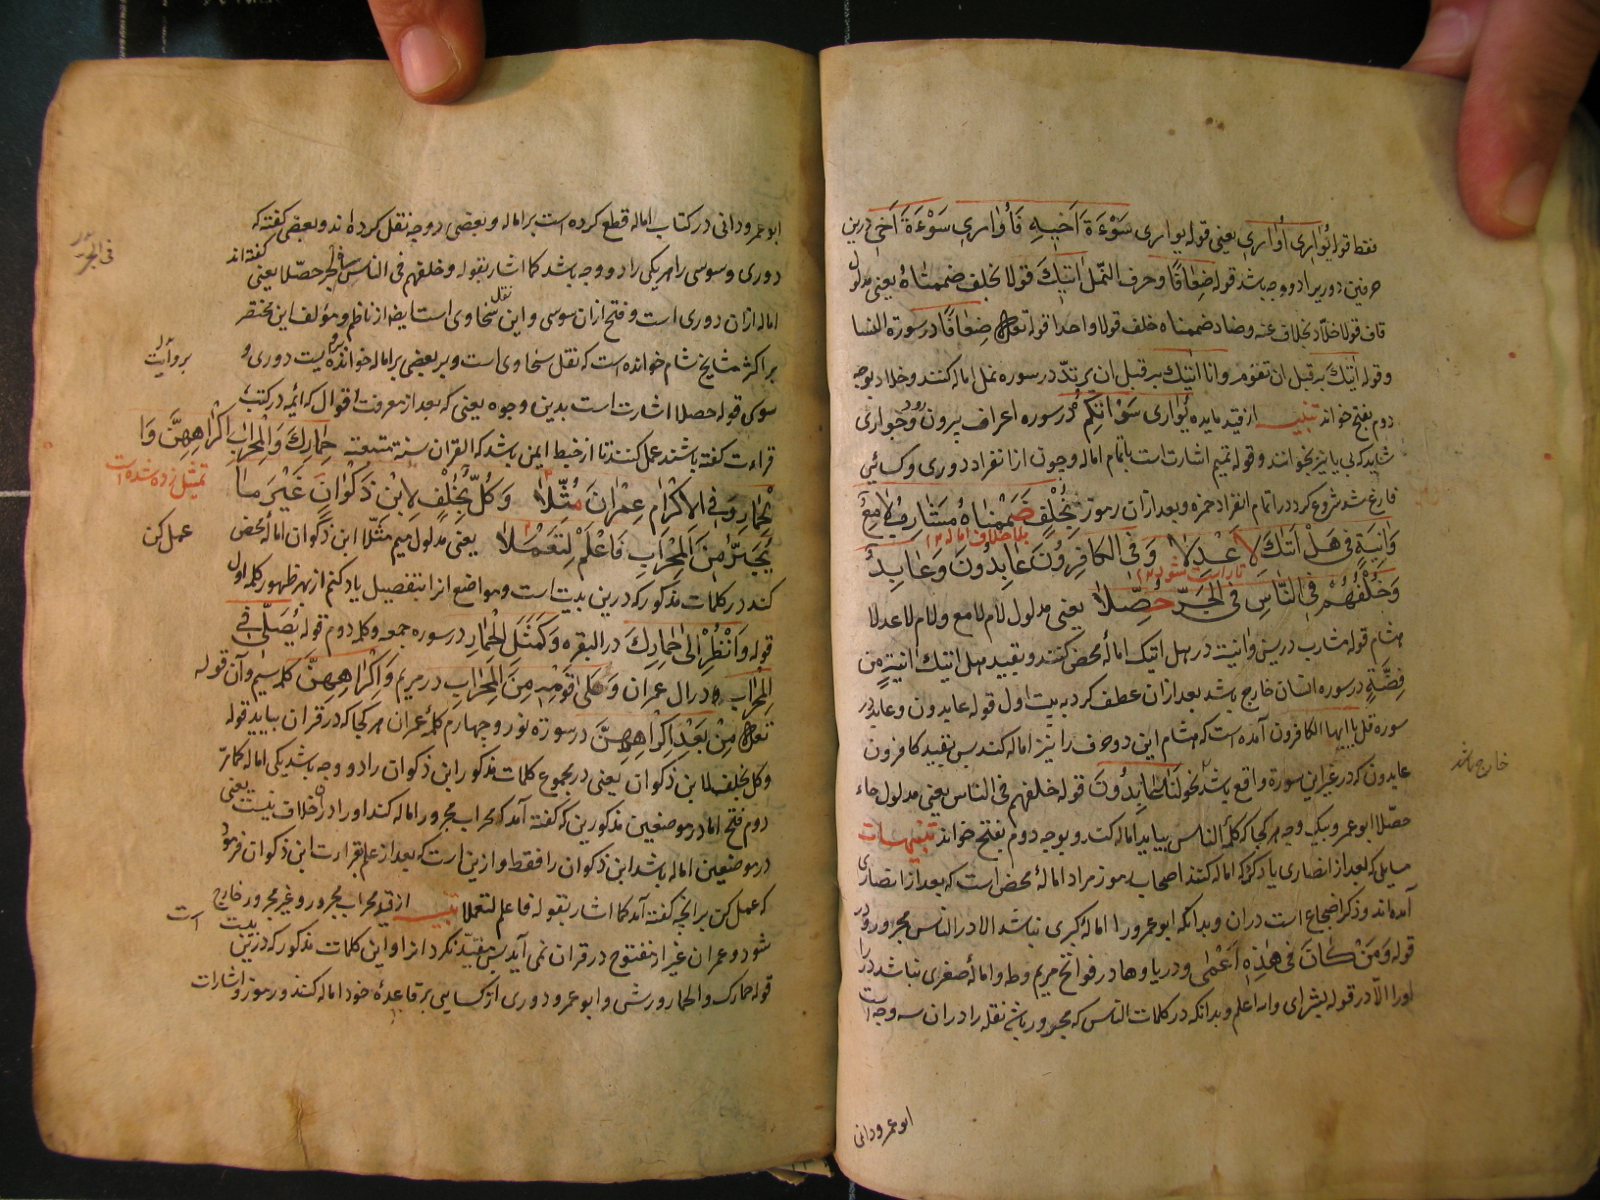 فقط قوله یُوَارِی أُوَارِی یعنی قوله یواری سَوْءَةَ اَخِیهِ فَأُوَارِیَ سَوْءَةَ اَخِی درین
حرفین دوریرا دو وجه باشد قوله ضِعَافًا و حرف النَّمل اٰتِیكَ قولا بخلف ضممناهُ یعنی مدلول
قاف قولا خلّاد بخلاف عنه و ضاد ضممناه خلف قولا واحدا قوله تعالی ضِعَافًا در سورة النسا
و قوله اٰتِیكَ به قبل ان تقوم و انا اٰتِیكَ به قبل ان یرتدّ در سوره نمل اماله کنند و خلاد بوجه
دوم بفتح خواند تنبیه از قید مایده یُوَاری سَوْاٰتِكُم در سوره اعراف بیرون رود و جواری
شاید که بی یا نیز بخوانند و قوله تمیم اشارت است باتمام اماله وجون از انفراد دوری و کسائی
فارغ شد شروع کرد در اتمام انفراد حمزه و بعد ازان رموز بِخُلْفٍ ضَمَمْنَاهُ مَشَارِبُ لَامِعٌ
وَاٰنِیَةٍ فِی هَلْ اَتٰیكَ لِاَعْدَلَا وَفِی الکَافِرُونَ عَابِدُونَ وَعَابِدٌ
وَخُلْفُهُمْ فِی النَّاسِ فِی الْجَرِّ حُصِّلَا یعنی مدلول لام لامع و لام لاعدلا
هشام قوله مشارب در یس و اٰنیة در هل اتیک اماله محض کنند و بقید هل اتیك اٰنِیَةٍ مِن
فِضَّةٍ در سوره انسان خارج باشد بعد ازان عطف کرد به بیت اول قوله عابدون و عابد در
سوره قل یا ایها الکافرون آمده است که هشام این دو حرف را نیز اماله کند پس بقید کافرون
عابدون که در غیر این سورة واقع باشد نحو لَنَا عَابِدُونَ قوله خلفهم فی الناس یعنی مدلول حاء
خارج باشد
حصّلا ابو عمرو بیک وجه هر کجا که کلمه الناس بیاید اماله کند و بوجه دوم بفتح خواند تنبیهات
مایلی که بعد از انصاری یاد کرد که اماله کنند اصحاب رموز مراد اماله محض است که بعد از انصاری
آمده اند و ذکر اضجاع است دران و بدانکه ابو عمرو را امالهٔ کبری نباشد الا در الناس مجرور و در
قوله وَمَنْ كَانَ فِی هٰذِهِ اَعْمٰی و در یا و ها در فواتح مریم و طه و اماله صغری نباشد
اورا الّا در قوله بشرای و الله اعلم و بدانکه در کلمات الناس که مجرور باشد نقله را دران سه وجه است
ابو عمرو دانی
ابو عمرو دانی در کتاب اماله قطع کرده است بر اماله و بعضی دو وجه نقل کرده اند و بعضی گفته که
دوری و سوسی را هر یکی را دو وجه باشد کما اشار بقوله و خلفهم فی الناس فی الجر حصّلا یعنی گفته اند
فی الجر
اماله ازان دوری است و فتح ازان سوسی و این نقل سخاوی است ایضا از ناظم و مؤلف این مختصر
بر اکثر مشایخ شام خوانده است که نقل سخاوی است و بر بعضی بر اماله خوانده بروایت دوری و
بروایت
سوسی قوله حصلا اشارت است بدین وجوه یعنی که بعد از معرفت اقوال که ائمه در کتب
قراءت گفته باشند عمل کنند تا از خبط ایمن باشد که القران سنة متبعة حِمَارِكَ وَالْمِحْرَابِ اِكْرَاهِهِنَّ وَا
لْحِمَارِ وَفِی الْاِكْرَامِ عِمْرَانَ مُثِّلَا وَكُلٌّ بِخُلْفٍ لِابْنِ ذَكْوَانَ غَیْرَ مَا
یُجَرُّ مِنَ الْمِحْرَابِ فَاعْلَمْ لِتَعْمَلَا یعنی مدلول میم مثّلا ابن ذکوان اماله محض
عمل کن
کند در کلمات مذکور که درین بیت است و مواضع انرا بتفصیل یاد کنم از بهر ظهور کلمه اول
قوله وَانْظُرْ اِلٰی حِمَارِكَ در البقره و كَمَثَلِ الْحِمَارِ در سوره جمعه و کلمه دوم قوله یُصَلِّی فِی
الْمِحْرَابِ در ال عمران و عَلٰی قَوْمِهِ مِنَ الْمِحْرَابِ در مریم و اِكْرَاهِهِنَّ کلمه سیم و آن قوله
تعالی مِنْ بَعْدِ اِكْرَاهِهِنَّ در سورة نور و چهارم کلمه عمران هر کجا که در قران بیاید قوله
و کل بخلف لابن ذکوان یعنی در مجموع کلمات مذکور ابن ذکوان را دو وجه باشد یکی اماله کما مرّ
دوم فتح اما در موضعین مذکورین که گفته آمد که محراب مجرور اماله کند او را در خلاف نیست یعنی
در موضعین اماله باشد ابن ذکوان را فقط و ازین است که بعد از علم بقراءت ابن ذکوان فرمود
که عمل کن بر انچه گفته آمد کما اشار بقوله فاعلم لتعملا تنبیه از قید محراب مجرور و غیر مجرور خارج
شود و عمران غیر از مفتوح در قران نمی آید پس مقید نکرد انرا و این کلمات مذکور که درین بیت
است
قوله حمارك و الحمار ورش و ابو عمرو و دوری از کسایی بر قاعدهٔ خود اماله کنند و رموز و اشارات